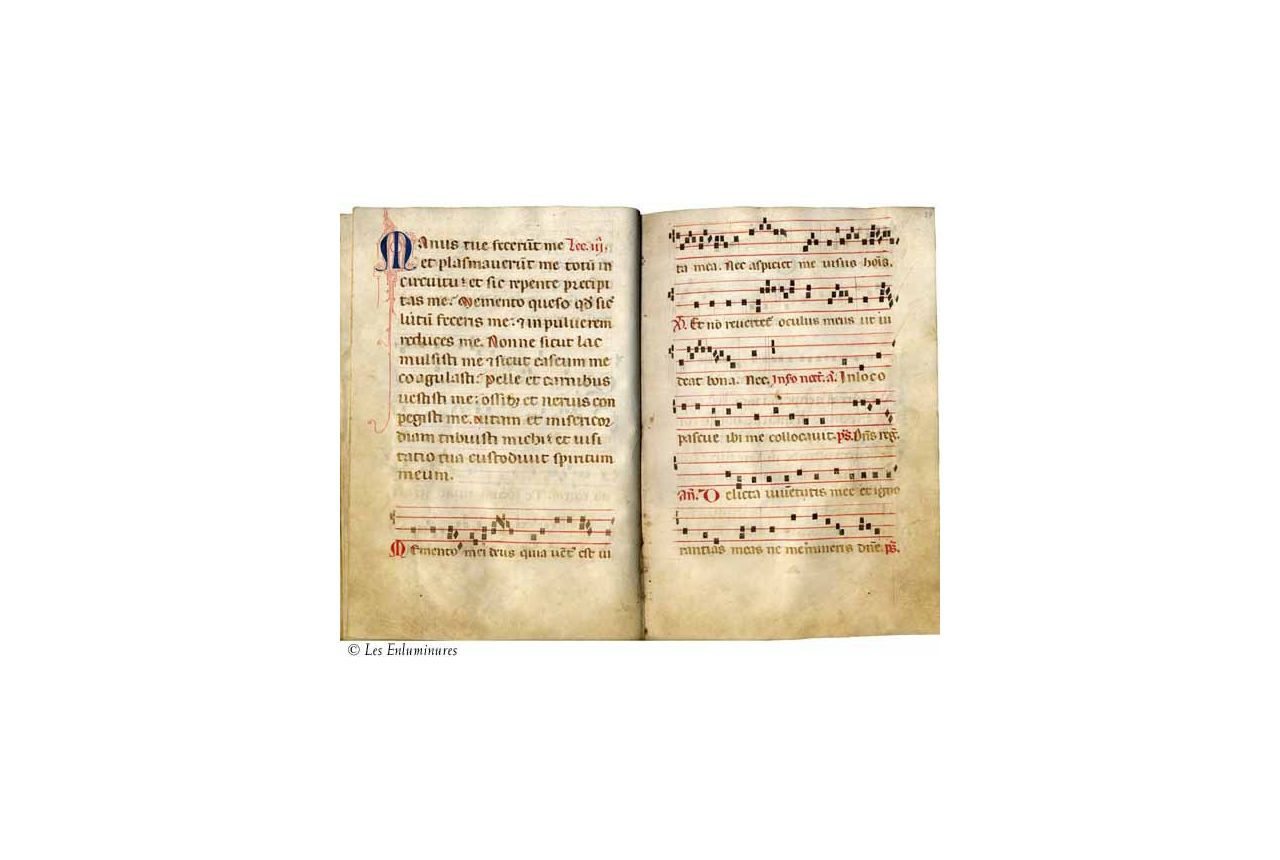 Manus tue fecerūt me Lec. iij.
et plasmaverūt me totū in
circuitu: et sic repente precipi
tas me? Memento queso qđ sic̄
lutū feceris me: ⁊ in pulverem
reduces me. Nonne sicut lac
mulsisti me ⁊ sicut caseum me
coagulasti? Pelle et carnibus
vestisti me: ossibꝫ et nervis con
pegisti me. Vitam et misericor
diam tribuisti michi: et visi
tatio tua custodivit spiritum
meum.
Memento mei deus quia vent᷒ est vi
ta mea. Nec aspiciet me visus hoīs.
℣. Et nō revertet᷒ oculus meus ut vi
deat bona. Nec. In sc̄o noct̄. a. In loco
pascue ibi me collocavit. p̄s. Dn̄s reḡ.
an̄. Delicta iuvētutis mee et igno
rantias meas ne memineris dn̄e. p̄s.
© Les Enluminures